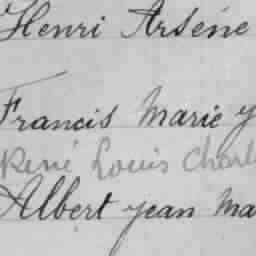 Henri Arsène
Francis Marie
René Louis Charl
Albert Jean Ma